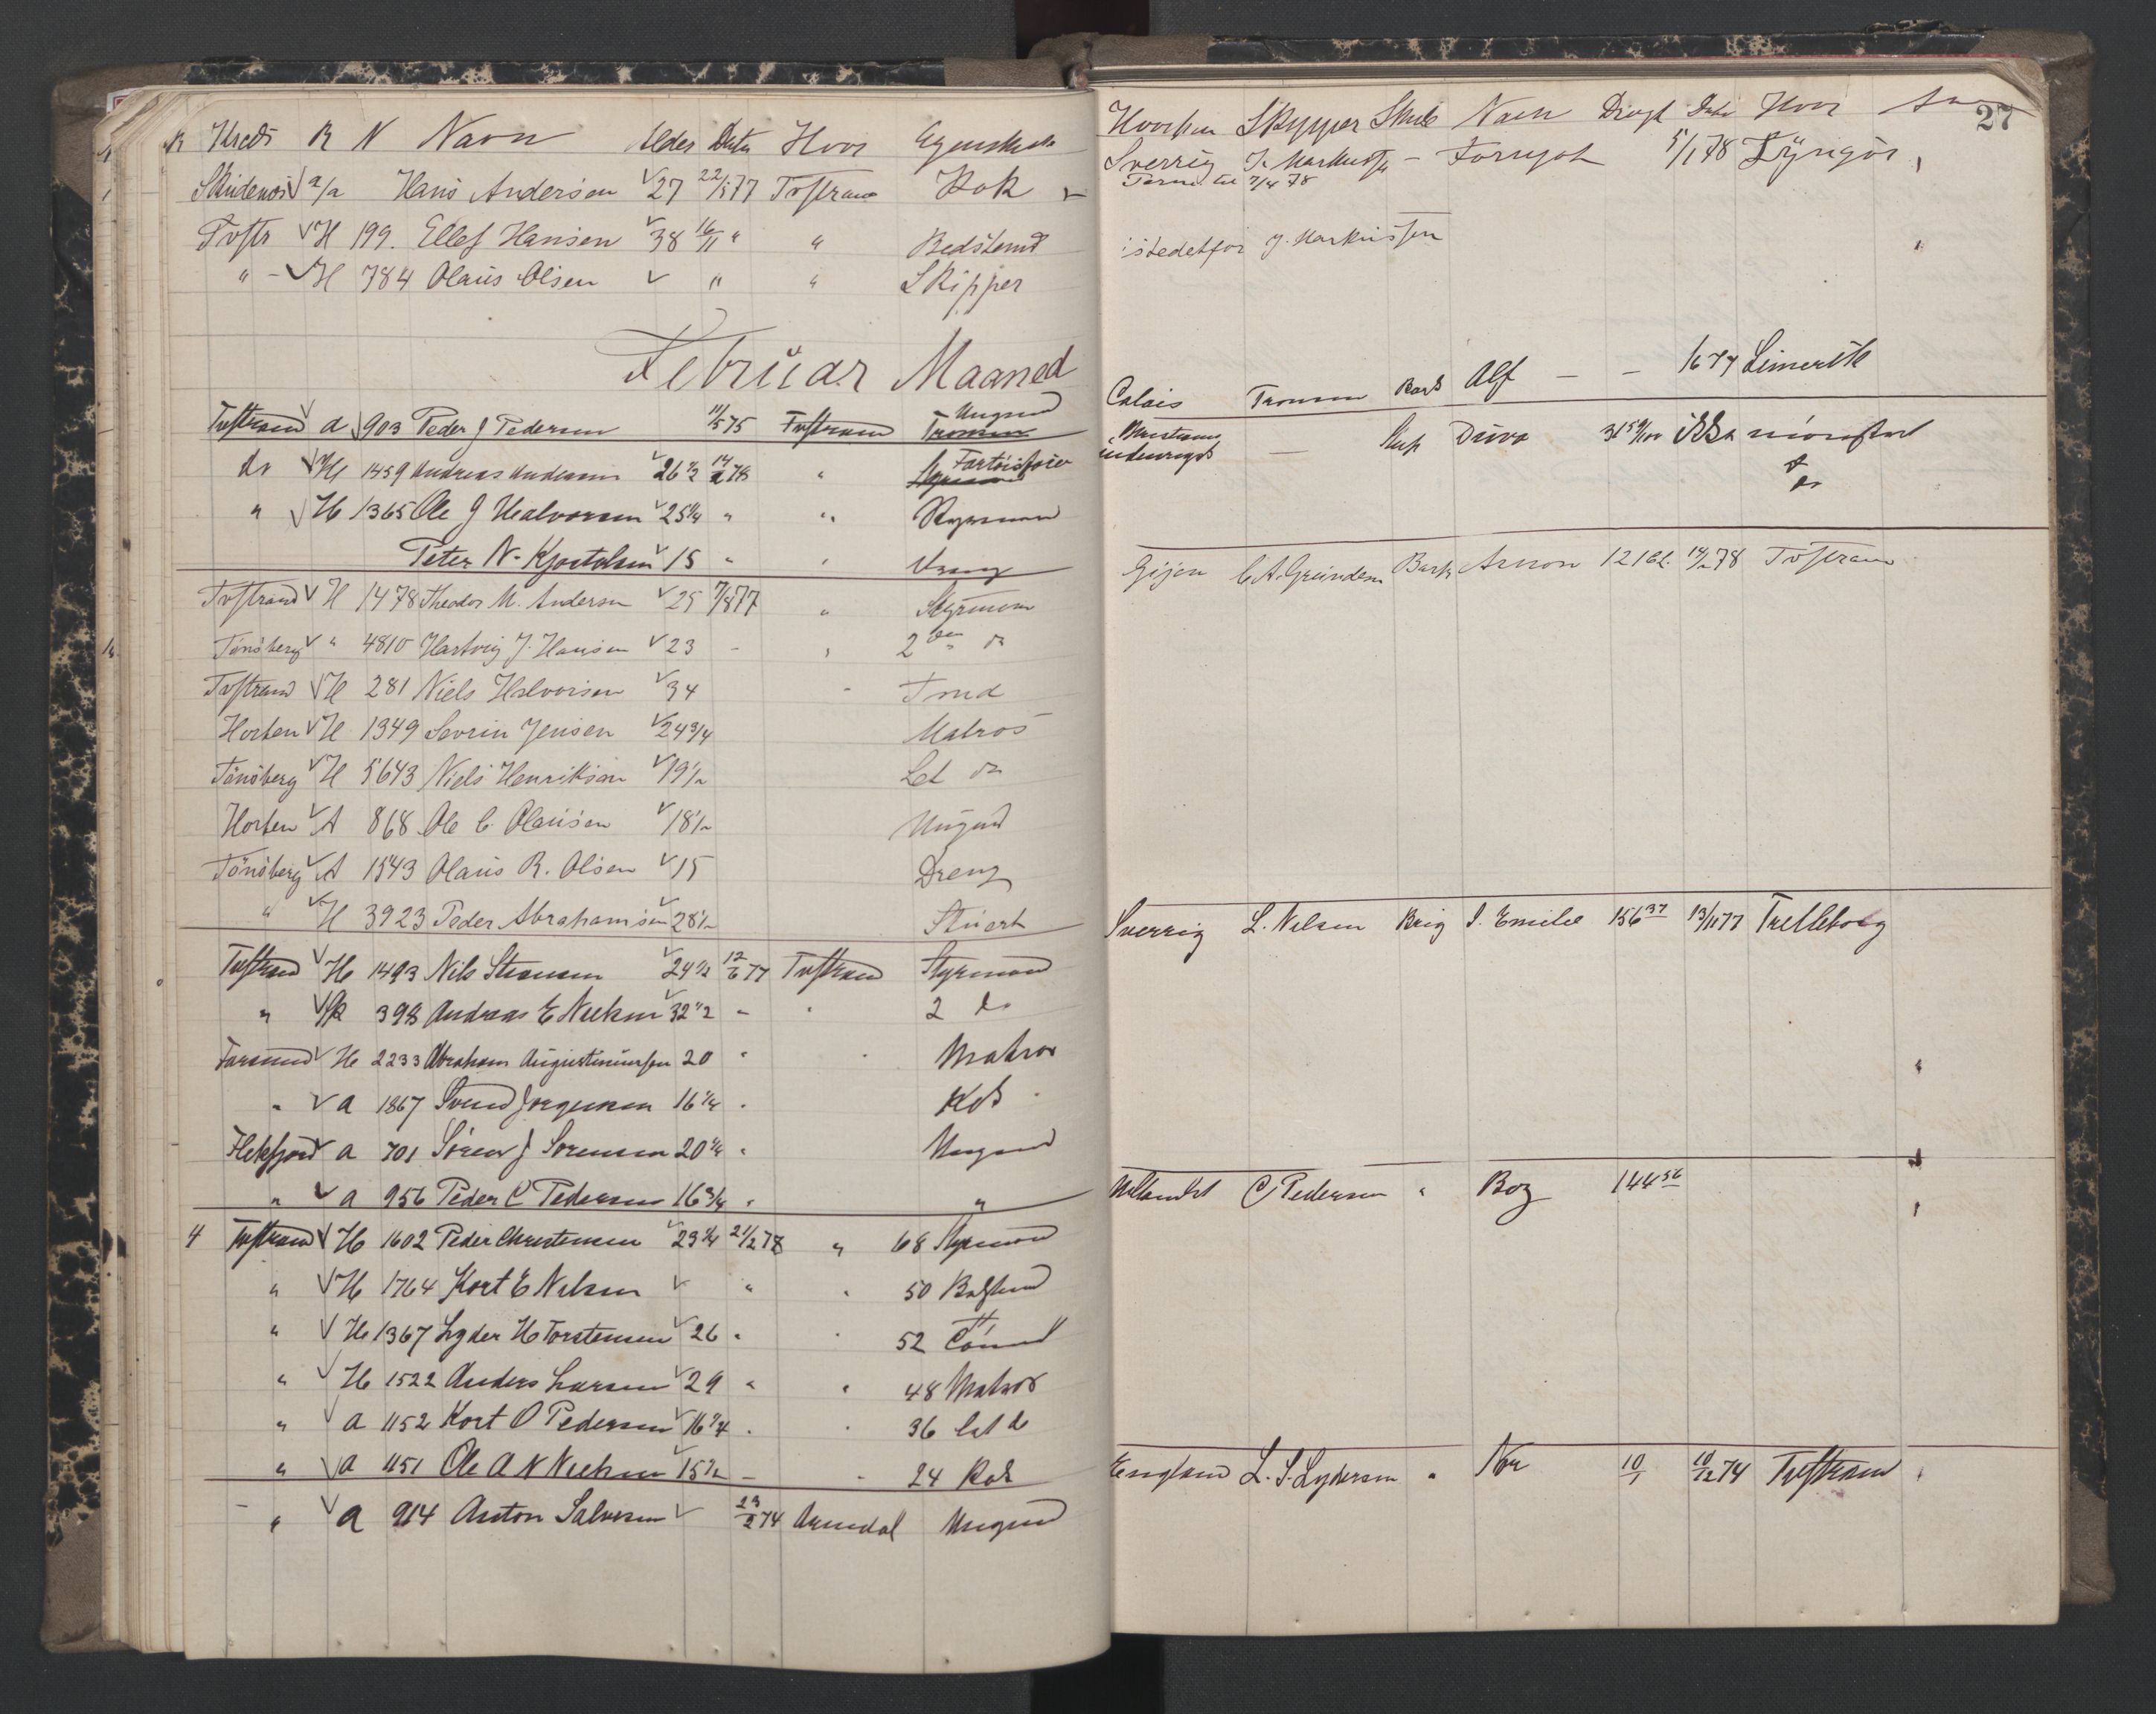 R Kreds R N Navn Alder Datu Hvor Egenskab
Skudenes a/a Hans Andersen 27 22/5 77 Tvstrand Kok
Tvstr H 199. Ellef Hansen 38 16/11 " " Bedstemd
" - H 784 Olaus Olsen " " Skipper
Februar Maaned
Tvstrand a 903 Peder J Pedersen 11/5 75 Tvstrand Ungmd
do H 1459 Andreas Andersen 26 1/2 14/2 78 "
" H 1365 Ole J Halvorsen 25 1/4 " " Styrmand
Peter N. Kjostolsen 15 " " Dreng
Tvstrand H 1478 Theodor M. Andersen 25 7/8 77 " Styrmann
Tønsberg " 4810 Hartvig J. Hansen 23 - " 2den do
Tvstrand H 281 Niels Halvorsen 34 Tmd
Horten H 1349 Sevrin Jensen 24 3/4 Matros
Tønsberg H 5643 Niels Henriksen 19 1/2 Let do
Horten A 868 Ole C. Olausen 18 1/2 Ungmd
Tønsberg A 1543 Olaus R. Olsen 15 Dreng
" H 3923 Peder Abrahamsen 28 1/2 Stuert
Tvstrand H 1493 Nils Stensen 24 1/2 12/6 77 Tvstrand Styrmand
" 398 Andreas E Nielsen 32 1/2 - " 2 do
Farsund H 2233 Abraham Augustinussen 20 " " Matros
" a 1867 Svend Jørgensen 16 1/4 " Kok
Flekfjord a 701 Søren J Sørensen 20 1/4 " Ungmd
" a 956 Peder C Pedersen 16 3/4 " "
4 Tvstrand H 1602 Peder Christensen 23 1/4 21/2 78 " 68 Styrmand
" H 1764 Kort E Nielsen " " 50 Bedstemd
" H 1367 Lyder H Torstensen 26 " " 52
" H 1522 Anders Larsen 29 " " 48 Matros
" a 1152 Kort O Pedersen 16 1/4 " " 36 Let do
" a 1151 Ole A N Nielsen 15 1/2 - " 24 Kok
- " a 914 Anton Salvesen 23/2 74 Arendal Ungmd
27
Hvorhen Skipper Skib Navn Drægt Datu Hvor
Sverrig J. Markussen - Fornyet 5/1 78 Lyngør
Perm. til 7/4 78
istedetfor J. Markussen
Calais Tronsen Bark Alf - - 1677 Limerik
indenrigs - Slup Duva 31 59/100 ikke mønstret
do
Gijon C. A. Gundersen Bark Arnon 121 CL. 14/2 78 Tvstrand
Sverrig L. Nilsen Brig I. Emilie 156 37 13/11 77 Trelleborg
Udlandet C Pedersen " Boz 144 56
England L. S. Lydersen " Nor 10/1 10/12 74 Tvstrand